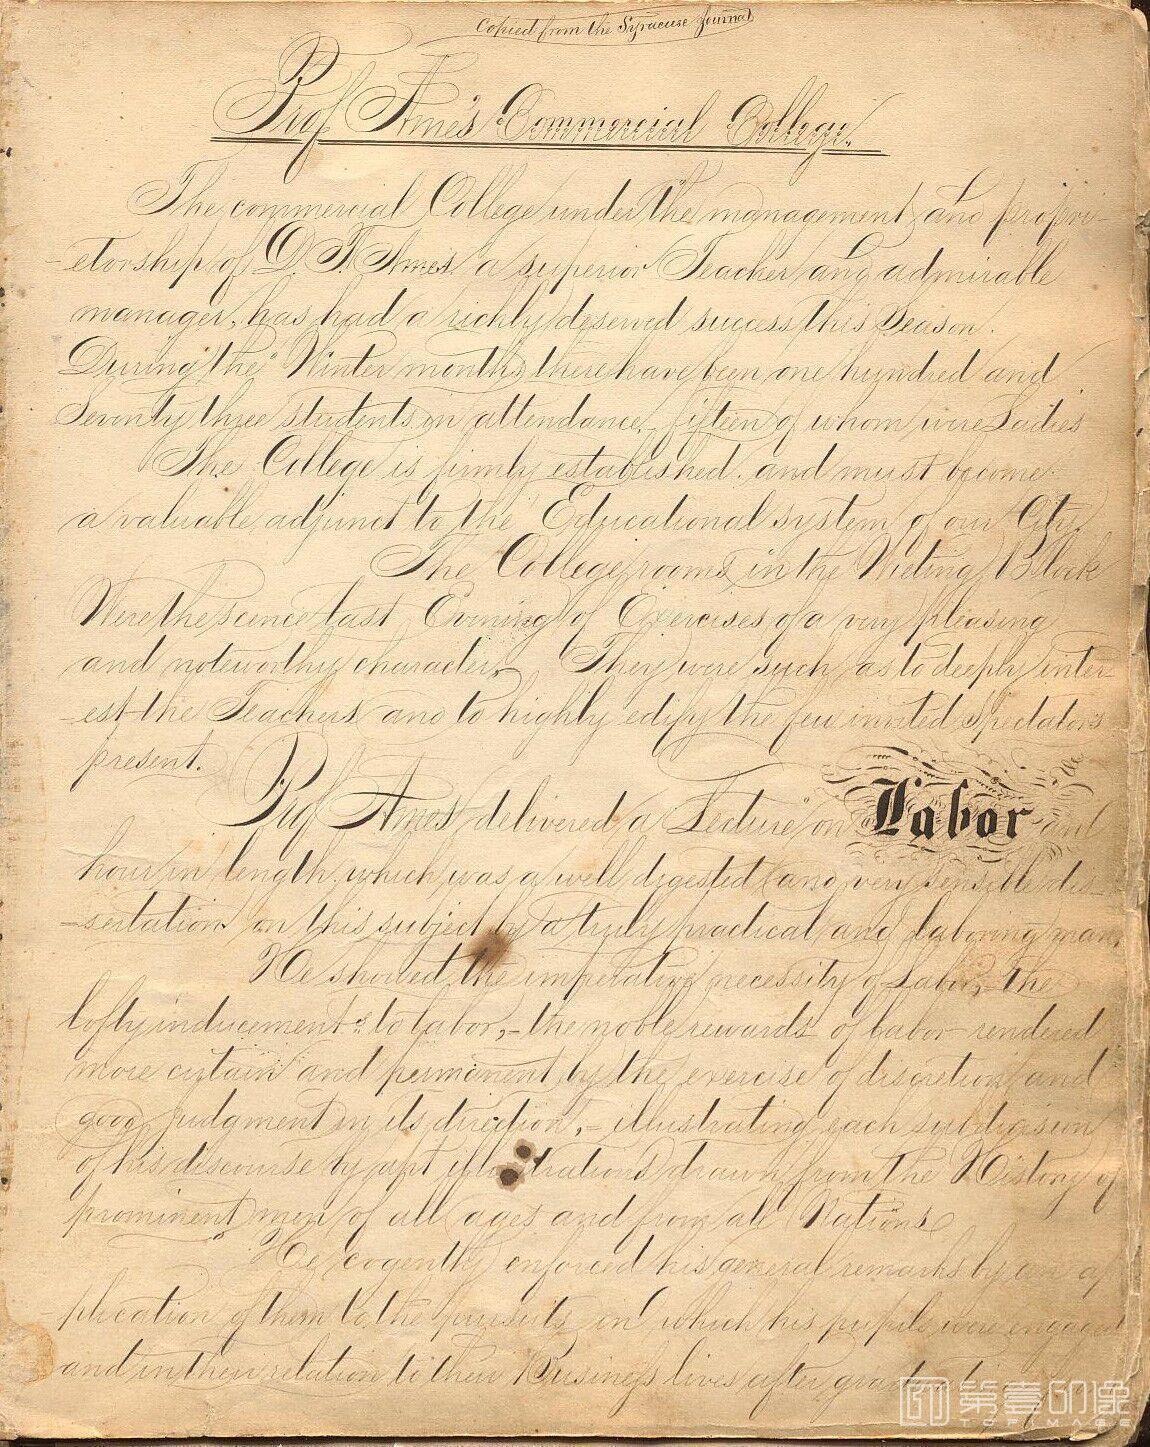 Copied from the Syracuse Journal
Prof. Ames' Commercial College.
The commercial College under the management and propri-
-etorship of D. T. Ames a superior Teacher and admirable
manager, has had a richly deserved success this Season.
During the Winter months there have been one hundred and
Seventy three students in attendance, fifteen of whom were Ladies
The College is firmly established. and must become
a valuable adjunct to the Educational system of our City.
The College rooms in the Wieting Block
Were the scence last Evening of Exercises of a very pleasing
and noteworthy character,- They were such as to deeply inter-
-est the Teachers and to highly edify the few invited Spectators
present.
Prof Ames delivered a Lecture on Labor and
hour in length which was a well digested and very sensible dis-
-sertation on this subject by a truly practical and laboring man,
He showed the imperative necessity of Labor, the
lofty inducements to labor,- the noble rewards of labor rendered
more certain and permanent by the exercise of discretion and
good judgment in its direction,- illustrating each subdivision
of his discourse by apt illustrations drawn from the History of
prominent men of all ages and from all Nations
He cogently enforced his general remarks by an ap
plication of them to the pursuits in which his pupils were engaged
and in their relation to their Business lives after graduating
第壹印象
TOPIMAGE